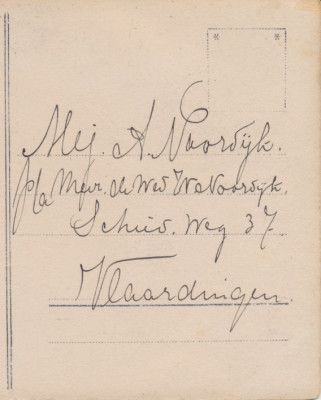 Mej. A. Noordijk.
p/a Mevr. de Wed W. Noordijk.
Schied. Weg 37.
Vlaardingen.